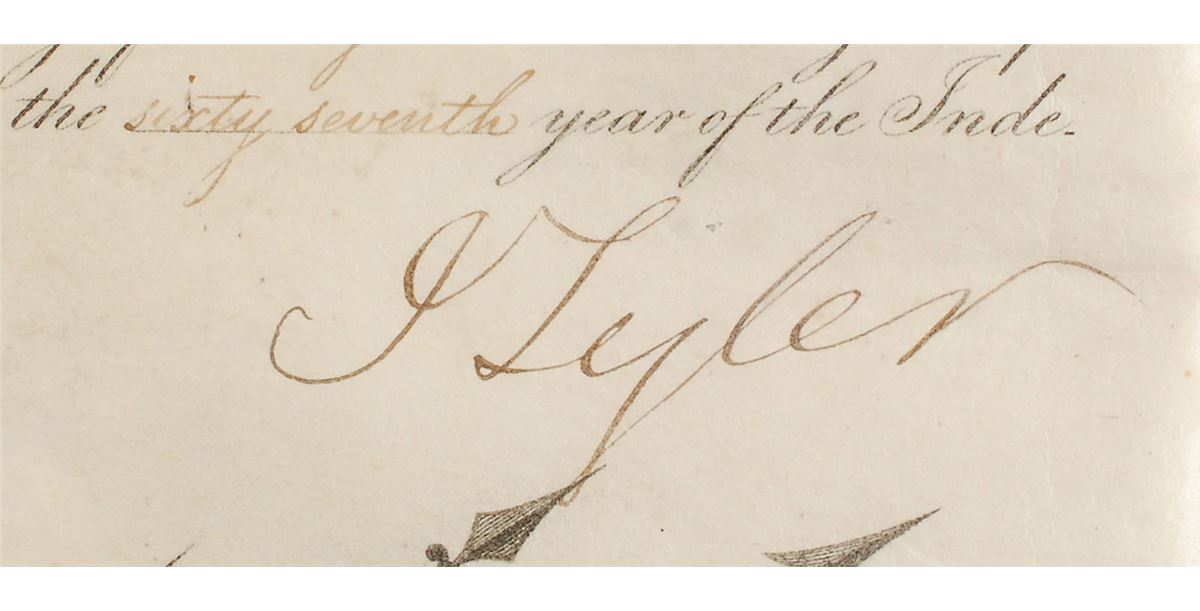 the sixty seventh year of the Inde-
J Tyler